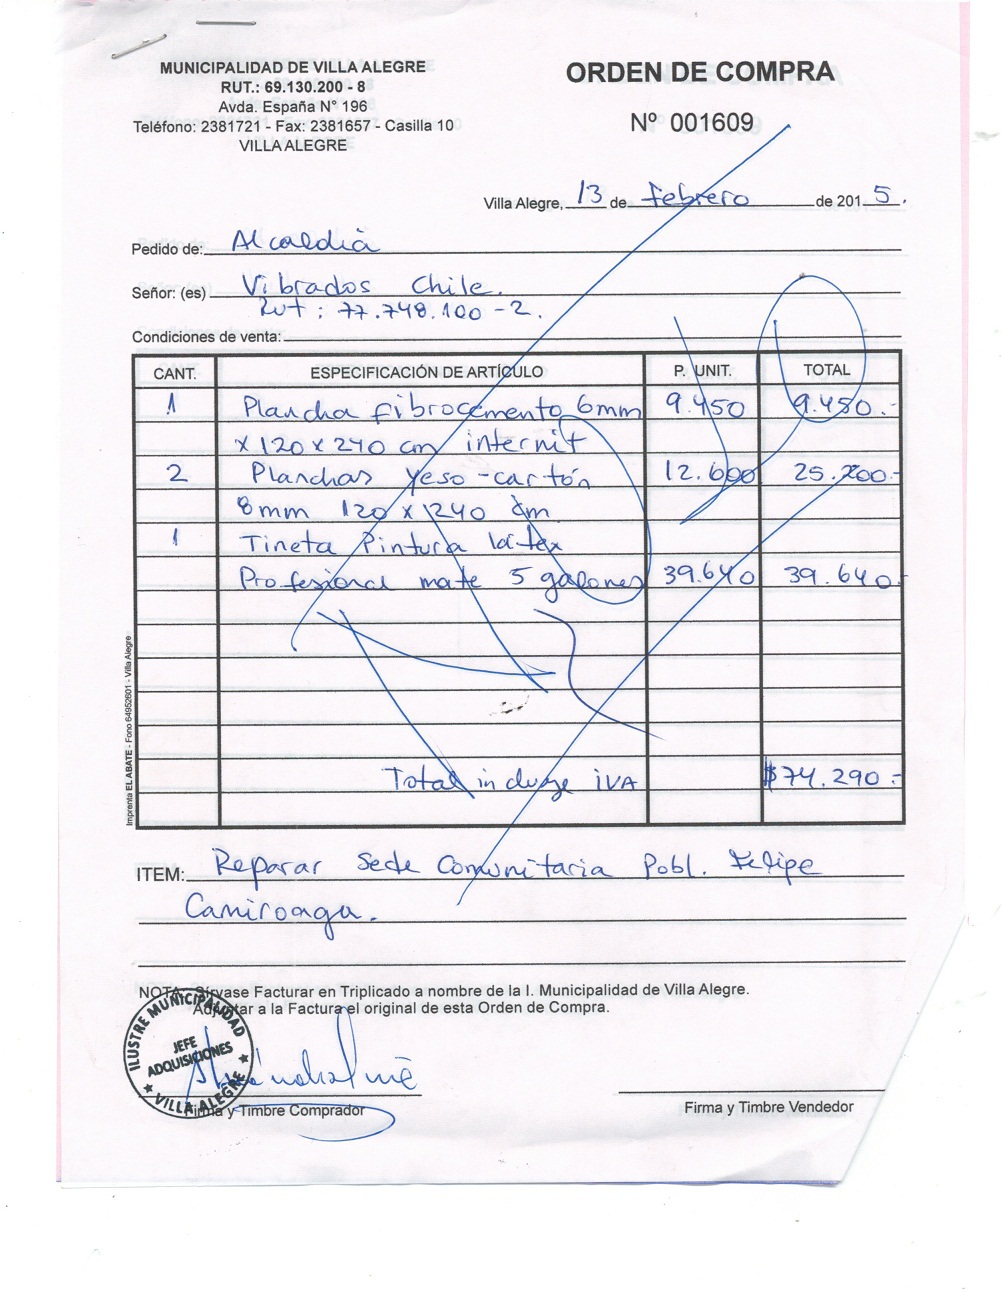 MUNICIPALIDAD DE VILLA ALEGRE
RUT.: 69.130.200 - 8
Avda. España N° 196
Teléfono: 2381721 - Fax: 2381657 - Casilla 10
VILLA ALEGRE
ORDEN DE COMPRA
Nº 001609
Villa Alegre, 13 de febrero de 2015.
Pedido de: Alcaldia
Señor: (es) Vibrados Chile.
Rut : 77.748.100-2.
Condiciones de venta:
CANT. ESPECIFICACIÓN DE ARTÍCULO P. UNIT. TOTAL
1 Plancha fibrocemento 6mm 9.450 9.450.-
x 120 x 240 cm internit
2 Planchas yeso-cartón 12.600 25.200.-
8mm 120 x 240 cm
1 Tineta Pintura latex
Profesional mate 5 galones 39.640 39.640.-
Total incluye IVA $74.290.-
ITEM: Reparar Sede Comunitaria Pobl. Felipe
Camiroaga.
NOTA: Sírvase Facturar en Triplicado a nombre de la I. Municipalidad de Villa Alegre.
Adjuntar a la Factura el original de esta Orden de Compra.
ILUSTRE MUNICIPALIDAD
JEFE
ADQUISICIONES
VILLA ALEGRE
Firma y Timbre Comprador
Firma y Timbre Vendedor
Imprenta ELABATE - Fono 64952601 - Villa Alegre